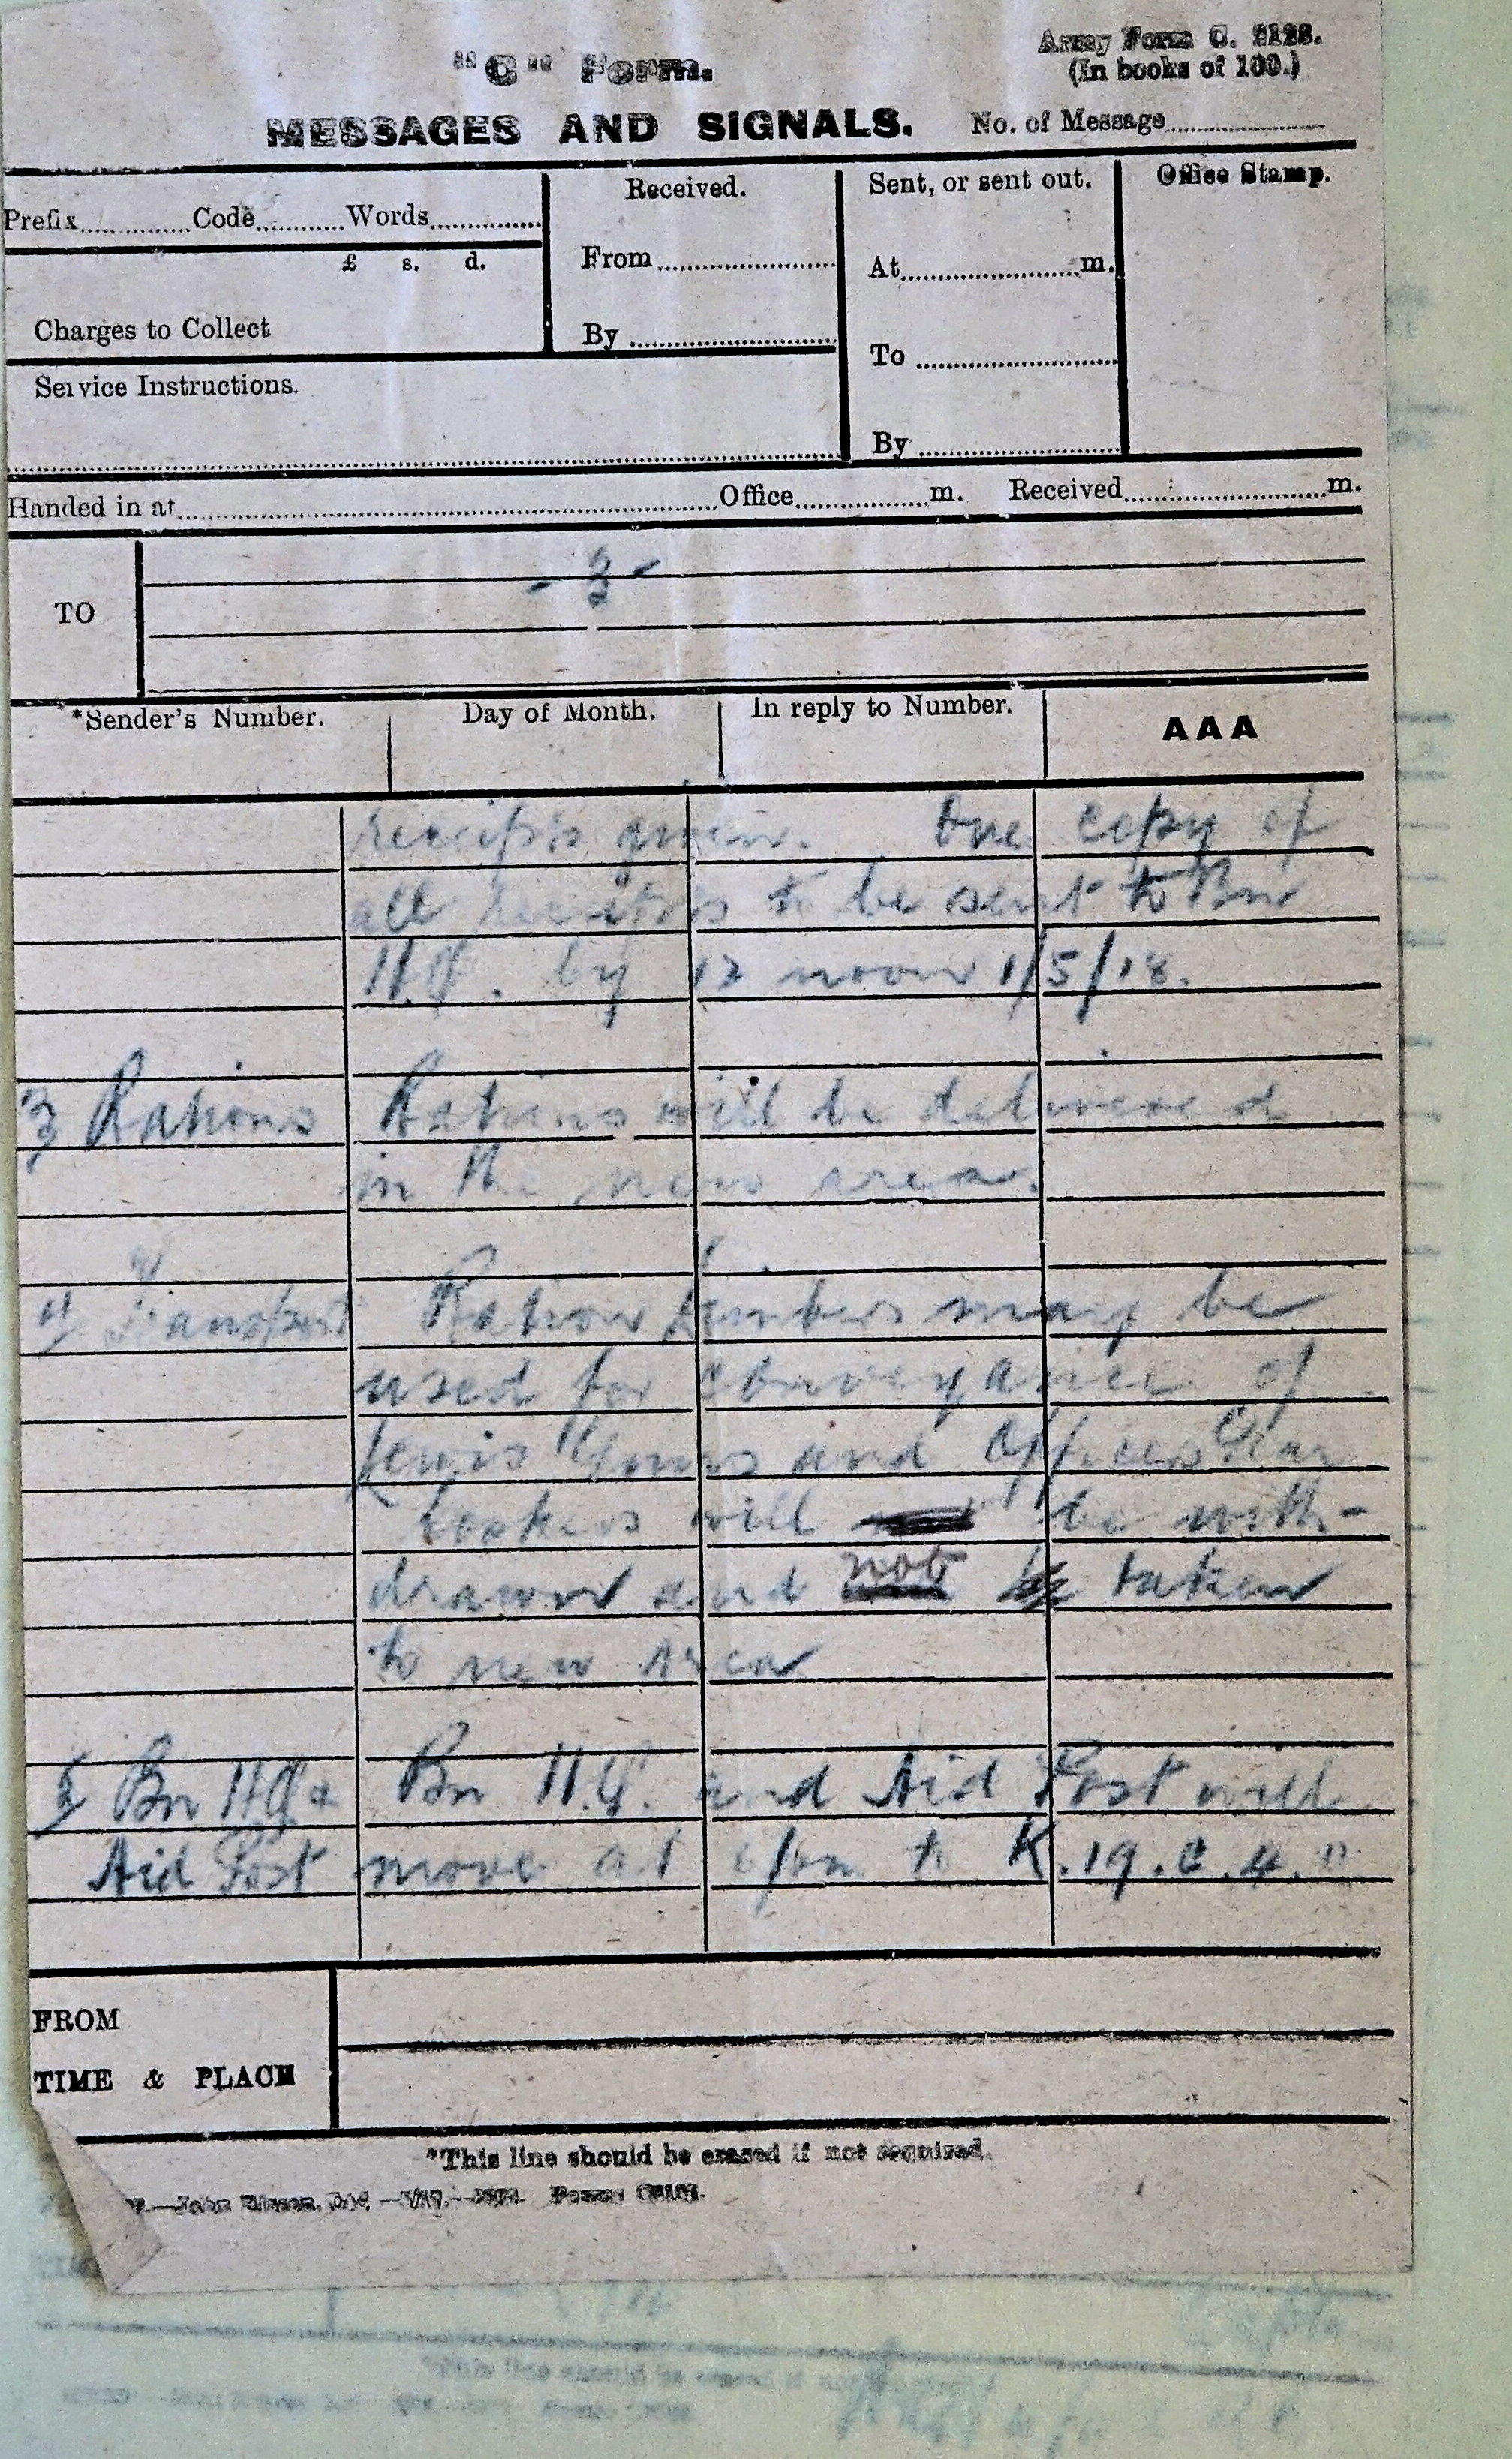 "C" Form.
Army Form C. 2123.
(In books of 100.)
MESSAGES AND SIGNALS.
No. of Message
Prefix Code Words
£ s. d.
Charges to Collect
Service Instructions.
Received.
From
By
Sent, or sent out.
At m.
To
By
Office Stamp.
Handed in at Office m. Received m.
TO
- 3 -
*Sender's Number. Day of Month. In reply to Number. AAA
receipts given. One copy of
all receipts to be sent to Bn
H.Q. by 12 noon 1/5/18.
3/ Rations Rations will be delivered
in the new area.
4/ Transport Ration limbers may be
used for conveyance of
Lewis Guns and Officers Gear
Cookers will be with-
drawn and not taken
to new area
5/ Bn HQ & Bn H.Q. and Aid Post will
Aid Post move at to K.19.c.4.
FROM
TIME & PLACE
*This line should be erased if not required.